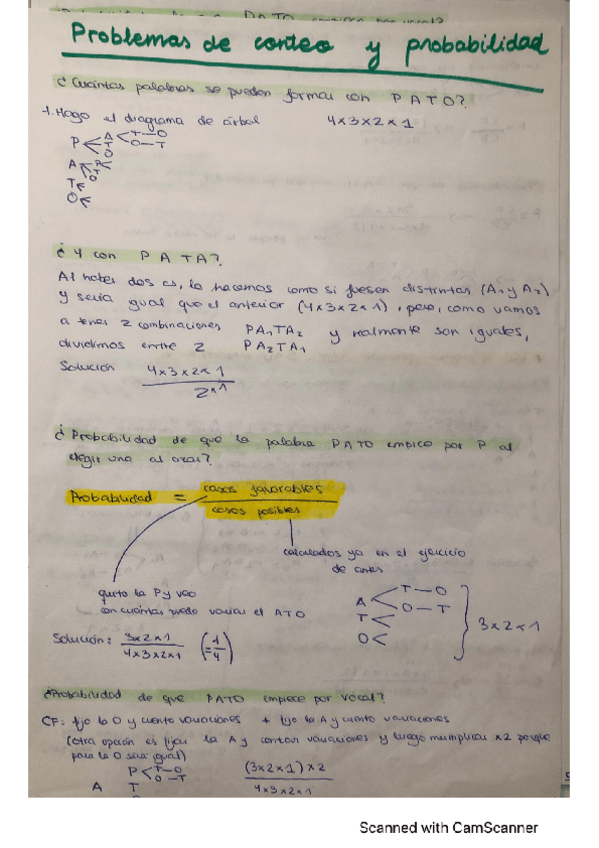 Problemas de conteo y probabilidad
¿Cuántas palabras se pueden formar con PATO?
1. Hago el diagrama de árbol 4x3x2x1
P A T-O
T O-T
O
A P
T
O
T
O
¿Y con PATA?
Al haber dos as, lo hacemos como si fuesen distintas (A₁ y A₂)
y sería igual que el anterior (4x3x2x1), pero, como vamos
a tener 2 combinaciones PA₁TA₂ y realmente son iguales,
dividimos entre 2 PA₂TA₁
Solución 4x3x2x1
2x1
¿Probabilidad de que la palabra PATO empiece por P al
elegir una al azar?
Probabilidad = casos favorables
casos posibles
calculados ya en el ejercicio
de antes
quito la P y veo
con cuántas puedo variar el ATO
A T-O
O-T
T
O
3x2x1
Solución: 3x2x1 (=1/4)
4x3x2x1
¿Probabilidad de que PATO empiece por vocal?
CF: fijo la O y cuento variaciones + fijo la A y cuento variaciones
(otra opción es fijar la A y contar variaciones y luego multiplicar x2 porque
para la O sería igual)
P T-O
O-T
A T
(3x2x1)x2
4x3x2x1
Scanned with CamScanner